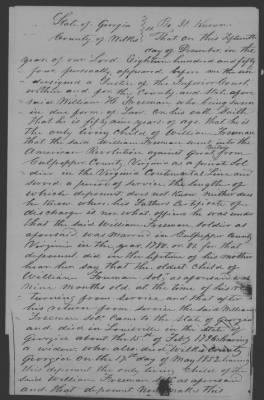 State of Georgia
County of Wilkes } ss Be It Known
That on this fifteenth
day of December, in the
year of our Lord Eighteen hundred and fifty
four personally appeared before me the un
designed a Justice of the Inferior Court
within and for the County and State afore
said William H. Freeman who being sworn
in due form of Law. On his oath saith
That he is fifty nine years of age. That he is
the only living Child of William Freeman
that the said William Freeman went into the
American Revolution against Great from
Culpepper County Virginia as a private Sol
dier in the Virginia Continental Line and
served a period of service the length of
which deponent does not know neither does
he know where his Fathers Certificate of
discharge is nor what officer he was under
that the said William Freeman soldier as
aforesaid was Married in Culpepper County
Virginia in the year 1780. or 81 for that
deponent did in the lifetime of his mother
hear her say that the oldest Child of
William Freeman Sol. aforesaid was
nine months old at the time of his re
turning from service and that after
his return from service the said William
Freeman Sol. Came to the State of Georgia
and died in Louisville in the State of
Georgia about the 15th of Feby 1796 leaving
a widow, who also died Wilkes County
Georgia On the 17th day of May 1852 leaving
this deponent the only living Child of the
said William Freeman Sol. as aforesaid
and that deponent now makes this